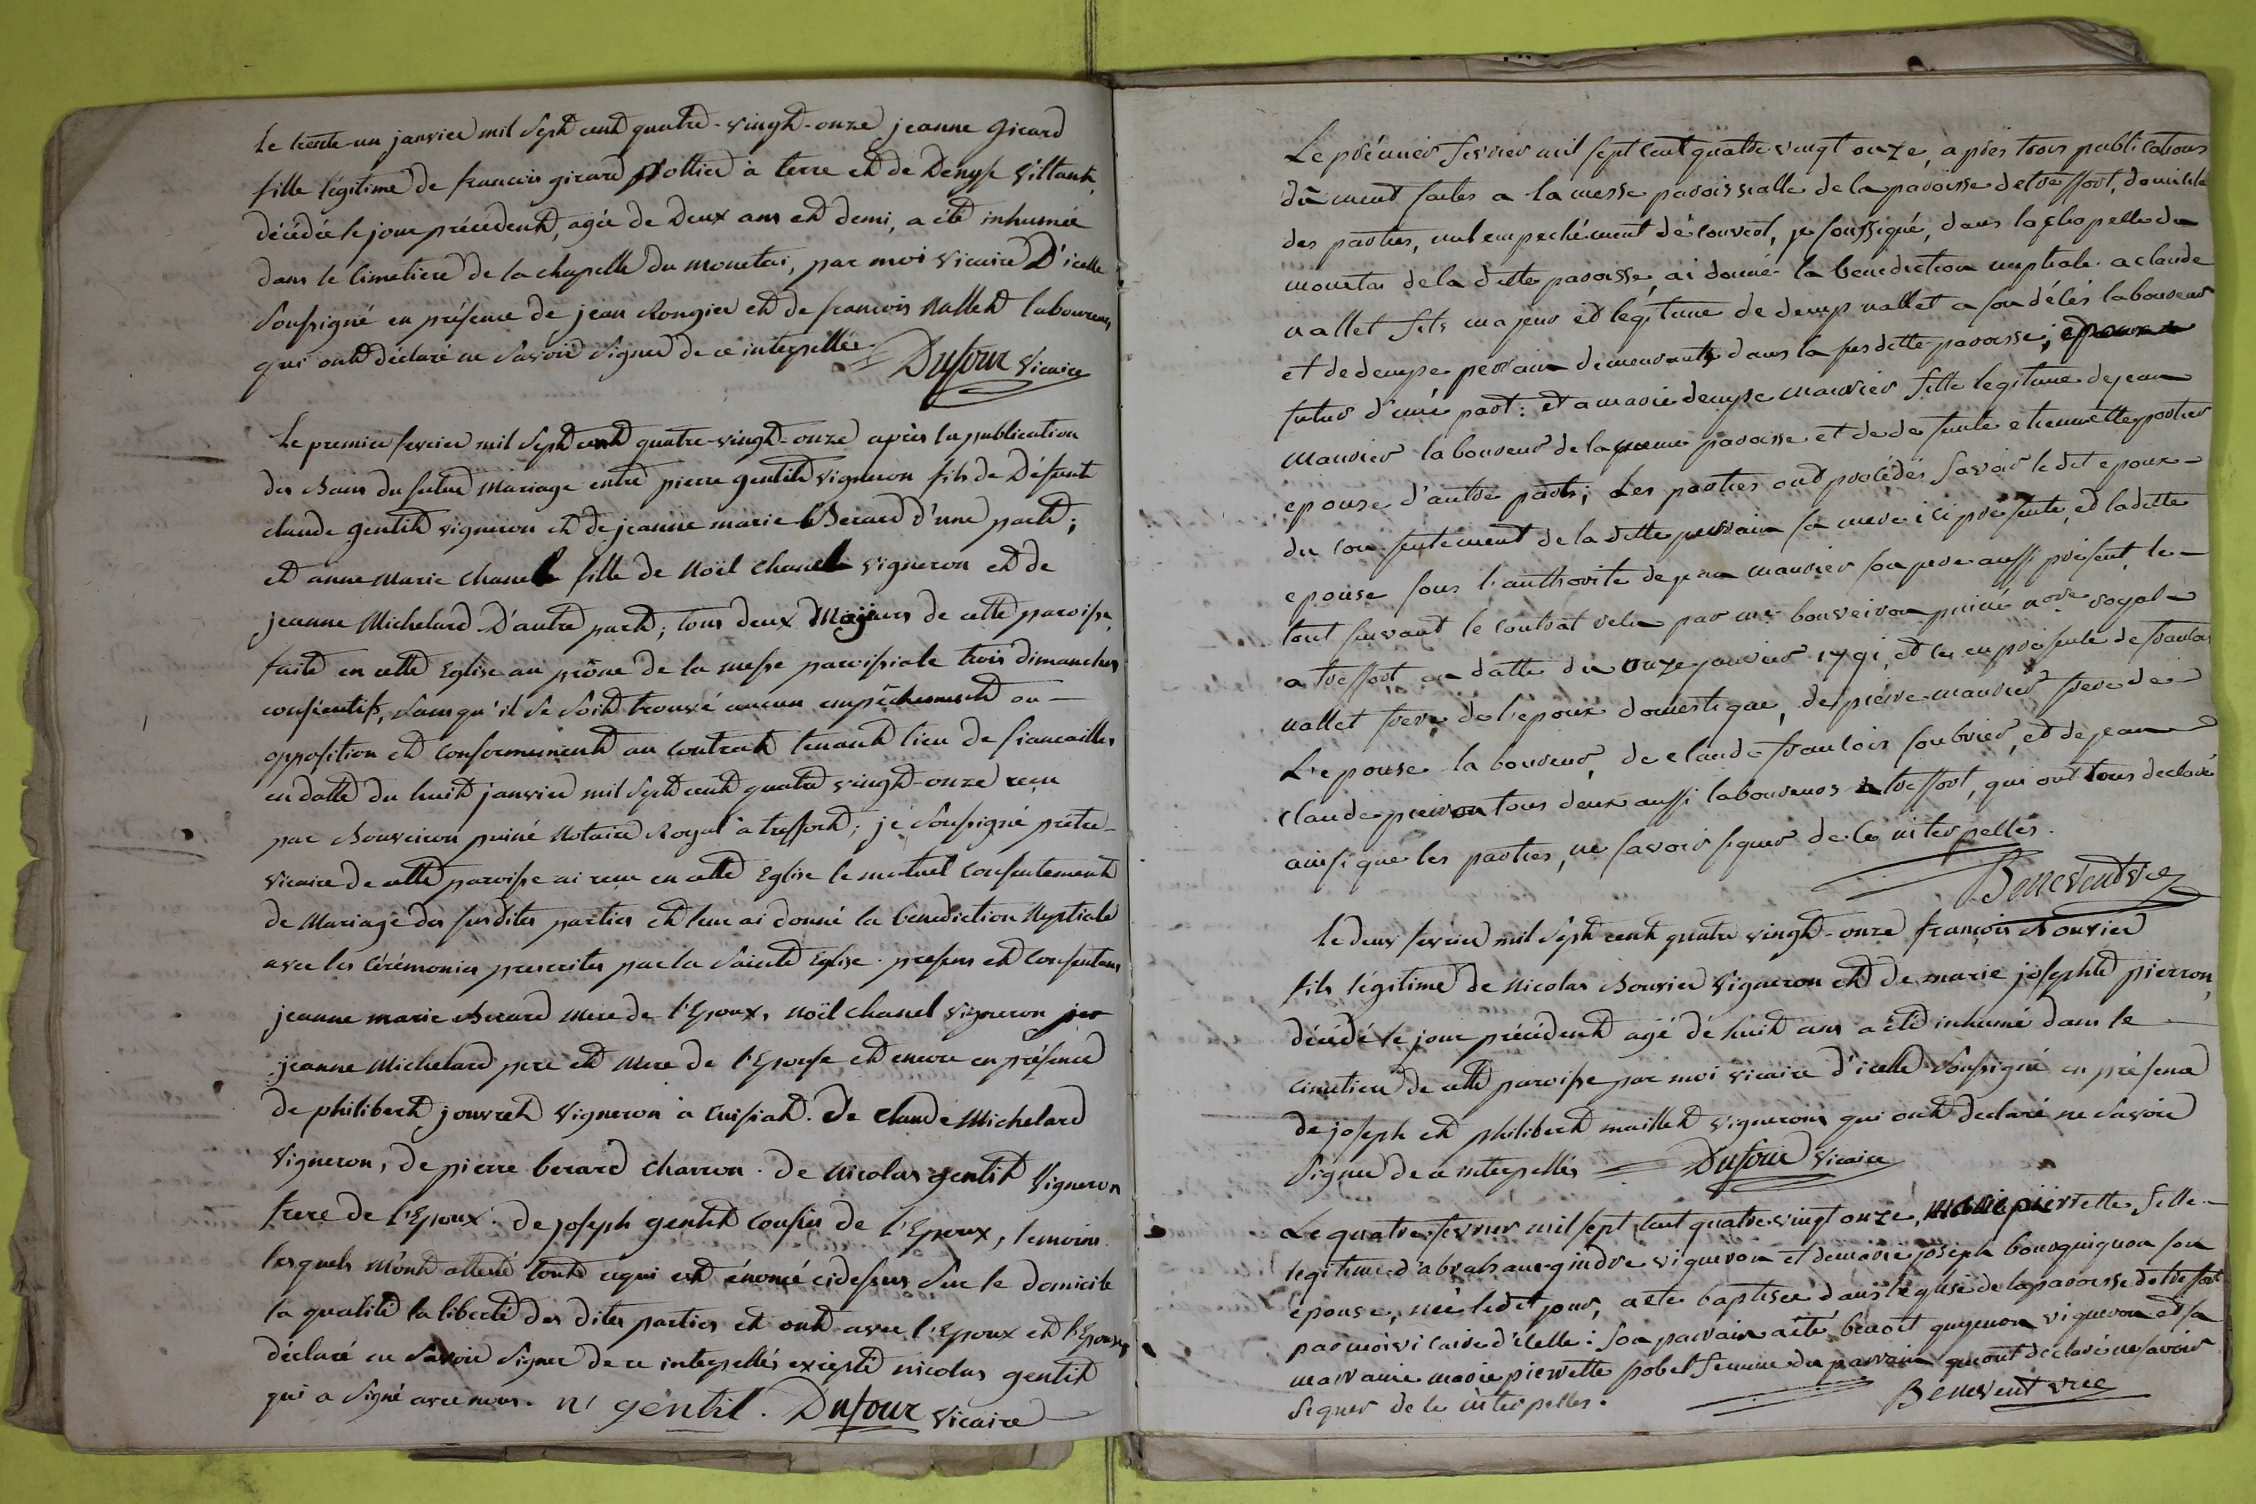 Le trente-un janvier mil sept cent quatre-vingt-onze jeanne Girard
fille légitime de francois girard pottier à terre et de Denyse Vittant,
décédée le jour précédent, agée de Deux ans et demi, a été inhumée
dans le Cimetiere de la chapelle du monetai, par moi vicaire D'icelle
soussigné en présence de jean Rongier et de francois Nallet laboureurs
qui ont déclaré ne savoir signer de ce interpellés Dufour vicaire
Le premier fevrier mil sept cent quatre-vingt-onze après la publication
des Bans du futur Mariage entre pierre gentil vigneron fils de Défunt
claude gentil vigneron et de jeanne marie Berard d'une part;
et anne Marie Chanel fille de Noël Chanel vigneron et de
jeanne Michelard D'autre part; tous deux Majeurs de cette paroisse,
faite en cette Eglise au prône de la messe paroissiale trois dimanches
consécutifs, sans qu'il se soit trouvé aucun empêchement ou
opposition et conformement au contrat tenant lieu de fiancailles
en datte du huit janvier mil sept cent quatre vingt-onze reçu
par Bouveiron puiné Notaire Royal à treffort; je soussigné prêtre
vicaire de cette paroisse ai reçu en cette Eglise le mutuel consentement
de Mariage des susdites parties et leur ai donné la bénédiction Nuptiale
avec les Cérémonies prescrites par la Sainte Eglise. presens et consentans
jeanne marie Berard mere de l'Epoux, noël chanel vigneron
jeanne Michelard pere et mere de l'Epouse et encore en présence
de philibert jouvret vigneron à Cuisiat. De Claude Michelard
vigneron, de pierre berard charron. de Nicolas gentil vigneron
frere de l'Epoux. de joseph gentil cousin de l'Epoux, temoins
lesquels m'ont attesté tout ce qui est énoncé cidessus sur le domicile
la qualité la liberté des dites parties et ont avec l'Epoux et l'Epouse
déclaré ne savoir signer de ce interpellés excepté nicolas gentil
qui a signé avec nous. n gentil. Dufour vicaire
Le prémier fevrier mil sept cent quatre vingt onze, après trois publications
dûment faites a la messe paroissialle de la paroisse de treffort, domicile
des parties, nul empechément découvert, je soussigné, dans la chapelle du
monetai de la ditte paroisse, ai donné la benediction nuptiale a claude
nallet fils majeur et légitime de denys nallet laboureur
et de denyse perrain demeurants dans la susditte paroisse; epoux
futur d'une part: et a marie denyse maurier fille legitime de jean
maurier laboureur de la meme paroisse et de defunte etiennette portier
epouse d'autre part; Les parties ont procédés savoir le dit epoux
du consentement de la ditte perrain sa mere ici présente, et la ditte
epouse sous l'authorité de jean maurier son pere aussi présent, le
tout suivant le contrat recu par me bouveiron puiné nore royal
a treffort en datte du onze janvier 1791, et ce en présence de francois
nallet frere de l'epoux domestique, de pierre maurier frere de
L'epouse laboureur, de claude francois soubrier, et de jean
claude pierron tous deux aussi laboureurs a treffort, qui ont tous declaré
ainsi que les parties, ne savoir signer de ce interpellés.
Benevent vre
le deux fevrier mil sept cent quatre vingt-onze françois Bouvier
fils légitime de Nicolas Bouvier vigneron et de marie josephte pierron,
décédé le jour précédent agé de huit ans a été inhumé dans le
cimetiere de cette paroisse par moi vicaire d'icelle soussigné en présence
de joseph et philibert maillet vignerons qui ont declaré ne savoir
signer de ce interpellés Dufour vicaire
Le quatre fevrier mil sept cent quatre vingt onze, marie pierrette fille
legitime d'abraham gindre vigneron et de marie joseph bourguignon son
épouse, née ledit jour, a eté baptisée dans l'eglise de la paroisse de treffort
par moi vicaire d'icelle: son parrain a été benoit guyenon vigneron et sa
marraine marie pierrette pobel femme du parrain qui ont declaré ne savoir
signer de ce interpellés. Benevent vre